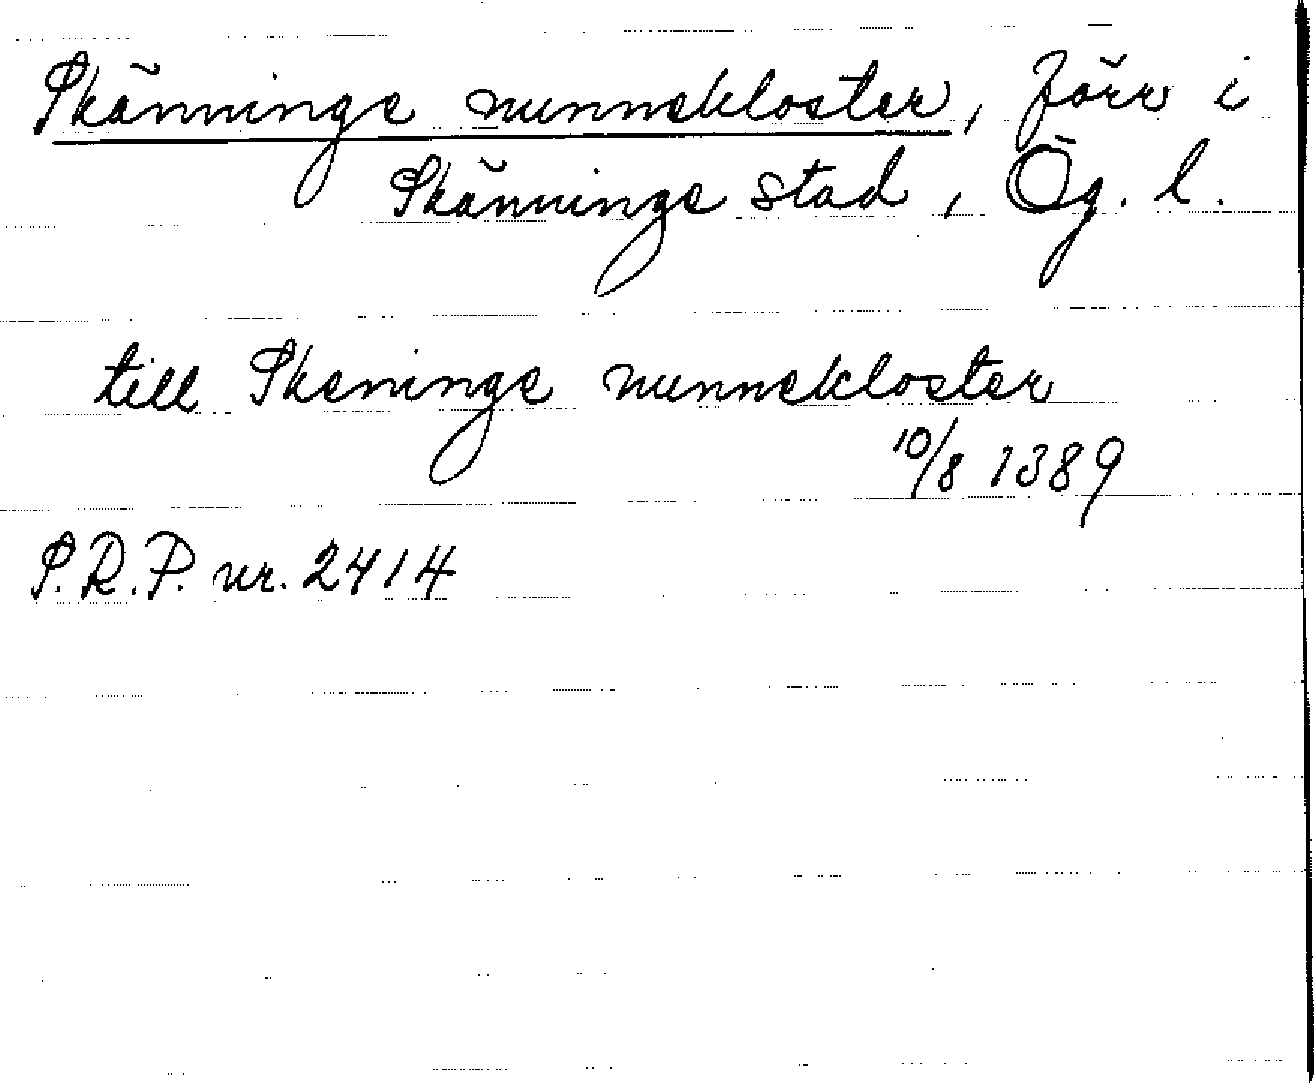 Skänninge nunnekloster, förr i
Skänninge stad, Ög. l.
till Skeninge nunnekloster
10/8 1389
S.R.P. nr. 2414